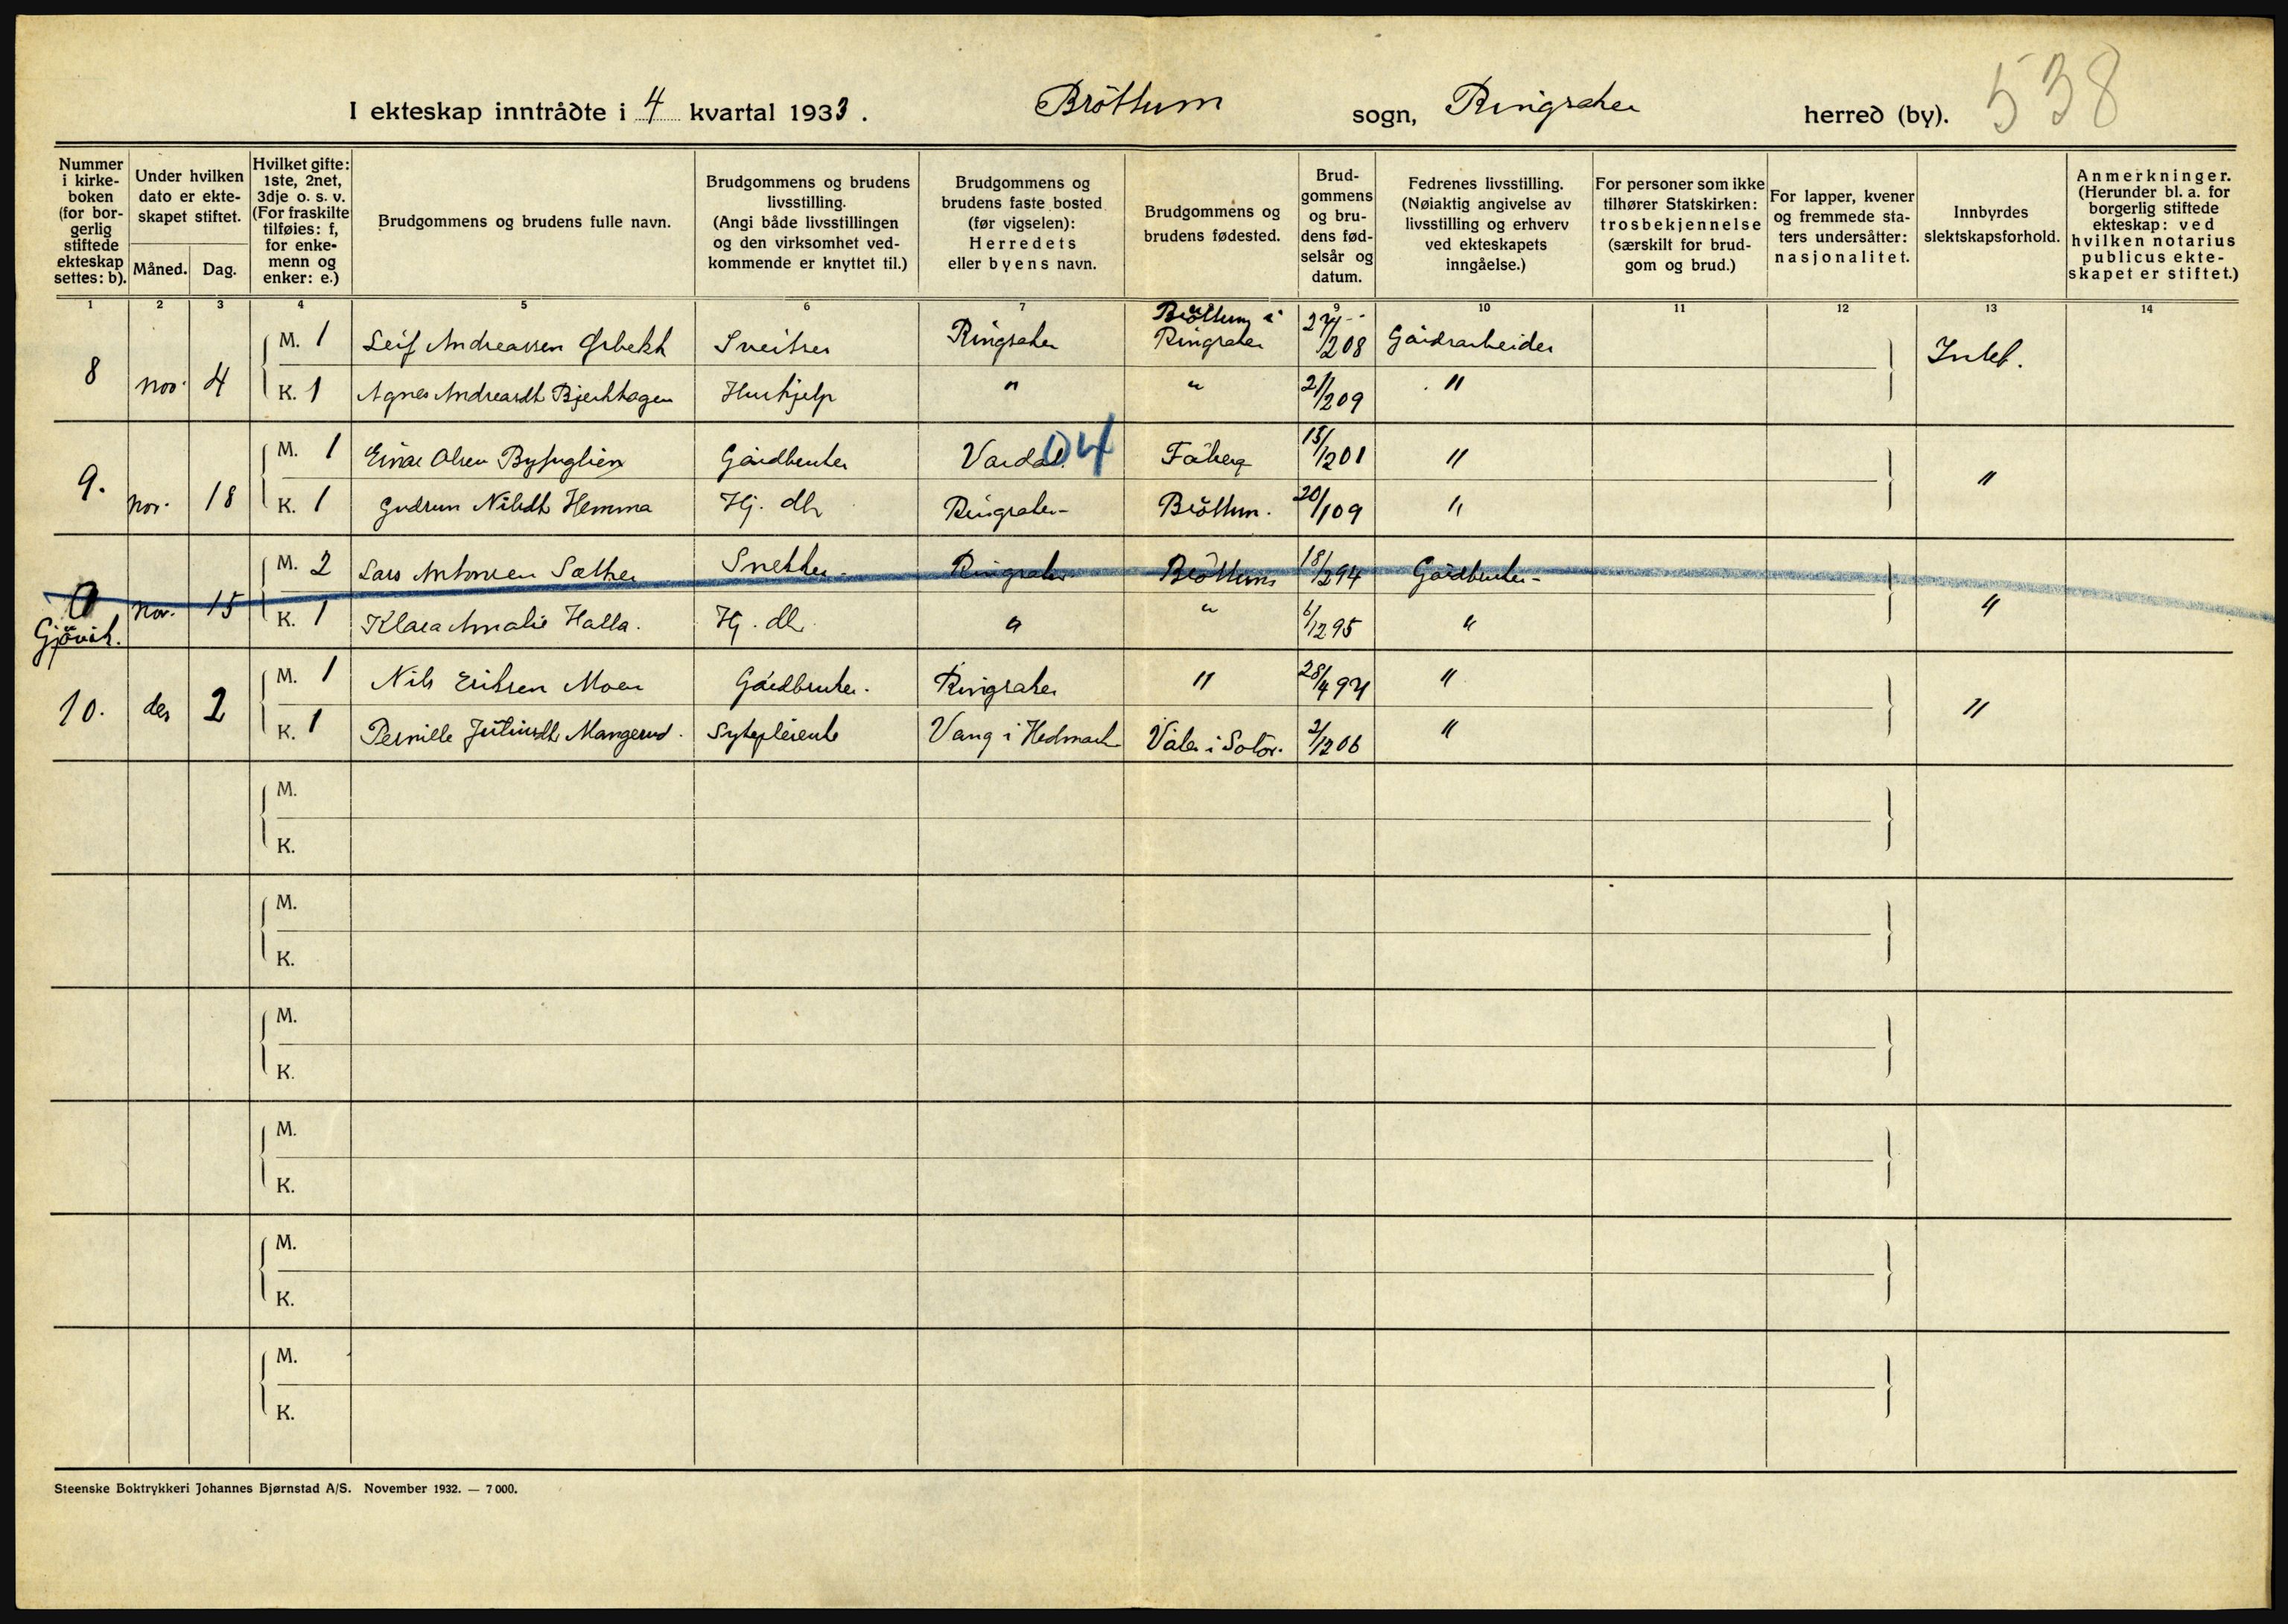 I ekteskap inntrådte i 4 kvartal 1933. Bröttum sogn, Ringsaker herred (by). 538
Nummer i kirke-boken (for bor-gerlig stiftede ekteskap settes: b).
Under hvilken dato er ekte-skapet stiftet.
Måned. Dag.
Hvilket gifte: 1ste, 2net, 3dje o. s. v. (For fraskilte tilføies: f, for enke-menn og enker: e.)
Brudgommens og brudens fulle navn.
Brudgommens og brudens livsstilling. (Angi både livsstillingen og den virksomhet ved-kommende er knyttet til.)
Brudgommens og brudens faste bosted (før vigselen): Herredets eller byens navn.
Brudgommens og brudens fødested.
Brud-gommens og bru-dens fød-selsår og datum.
Fedrenes livsstilling. (Nøiaktig angivelse av livsstilling og erhverv ved ekteskapets inngåelse.)
For personer som ikke tilhører Statskirken: trosbekjennelse (særskilt for brud-gom og brud.)
For lapper, kvener og fremmede sta-ters undersåtter: nasjonalitet.
Innbyrdes slektskapsforhold.
Anmerkninger. (Herunder bl. a. for borgerlig stiftede ekteskap: ved hvilken notarius publicus ekte-skapet er stiftet.)
1 2 3 4 5 6 7 8 9 10 11 12 13 14
8 nov. 4 M. 1 Leif Andreassen Ørbekk Sveitser Ringsaker Bröttum i Ringsaker /208 Gårdsarbeider Intet.
K. 1 Agnes Andreasdt Bjerkhagen Hushjelp " " 21/209 "
9. nov. 18 M. 1 Einar Olsen Bysuglien Gårdbruker Vardal 04 Fåberg 15/201 " "
K. 1 Gudrun Nilsdt Hemma Hj. dtr Ringsaker Bröttum. 20/109 "
Gjövik. nov. 15 M. 2 Lars Antonsen Sæther Snekker Ringsaker Bröttum 18/294 Gårdbruker "
K. 1 Klara Amalie Halla. Hj. dtr " " 6/1295 "
10. des 2 M. 1 Nils Eriksen Moen Gårdbruker. Ringsaker " 28/4 94 " "
K. 1 Pernille Juliusdt Mangerud. Sykepleierske Vang i Hedmark Våler i Solör. 2/1206 "
M.
K.
M.
K.
M.
K.
M.
K.
M.
K.
M.
K.
Steenske Boktrykkeri Johannes Bjørnstad A/S. November 1932. — 7 000.